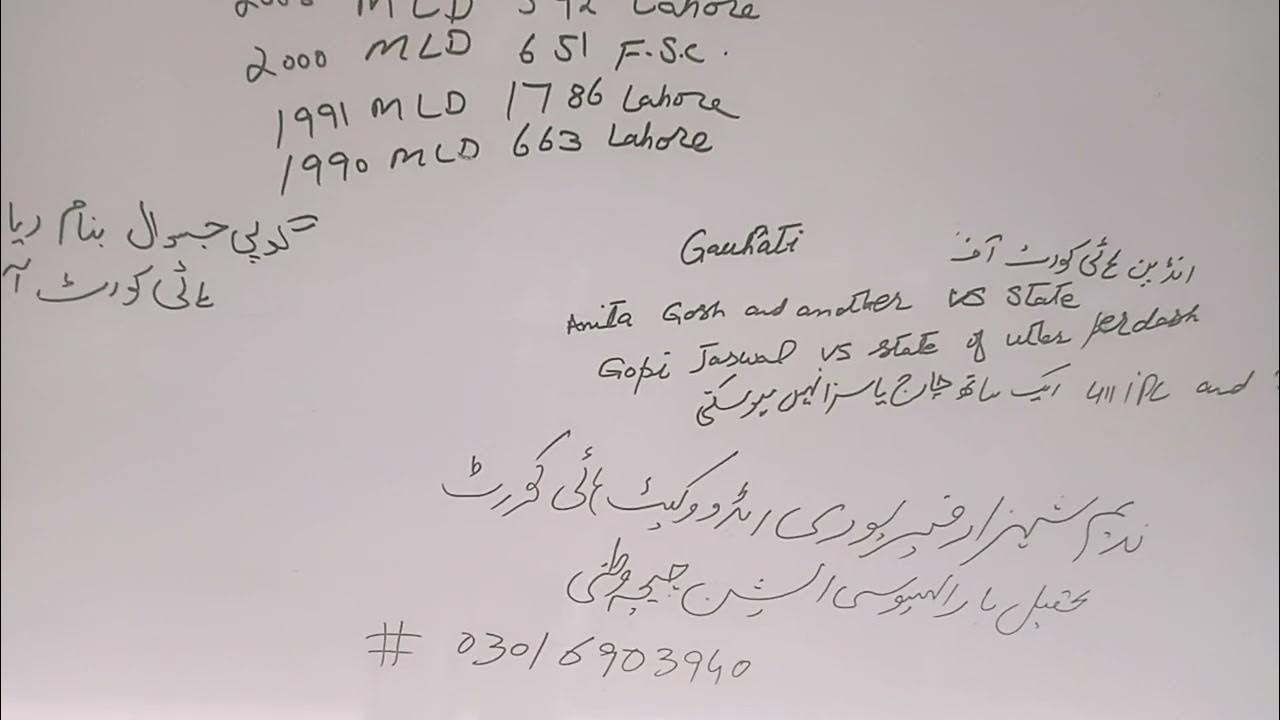 2000 MLD 542 Lahore
2000 MLD 651 F.S.C.
1991 MLD 1786 Lahore
1990 MLD 663 Lahore
= گوپی جسوال بنام
ہائی کورٹ آ
انڈین ہائی کورٹ آف Gauhati
Anita Gosh and another vs State
Gopi Jaswal vs State of utter perdash
411 iPC and ایک ساتھ چارج یا سزا نہیں ہو سکتی
ندیم شہزاد پوری ایڈووکیٹ ہائی کورٹ
تحصیل بار ایسوسی ایشن چیچہ وطنی
# 0301 6903940